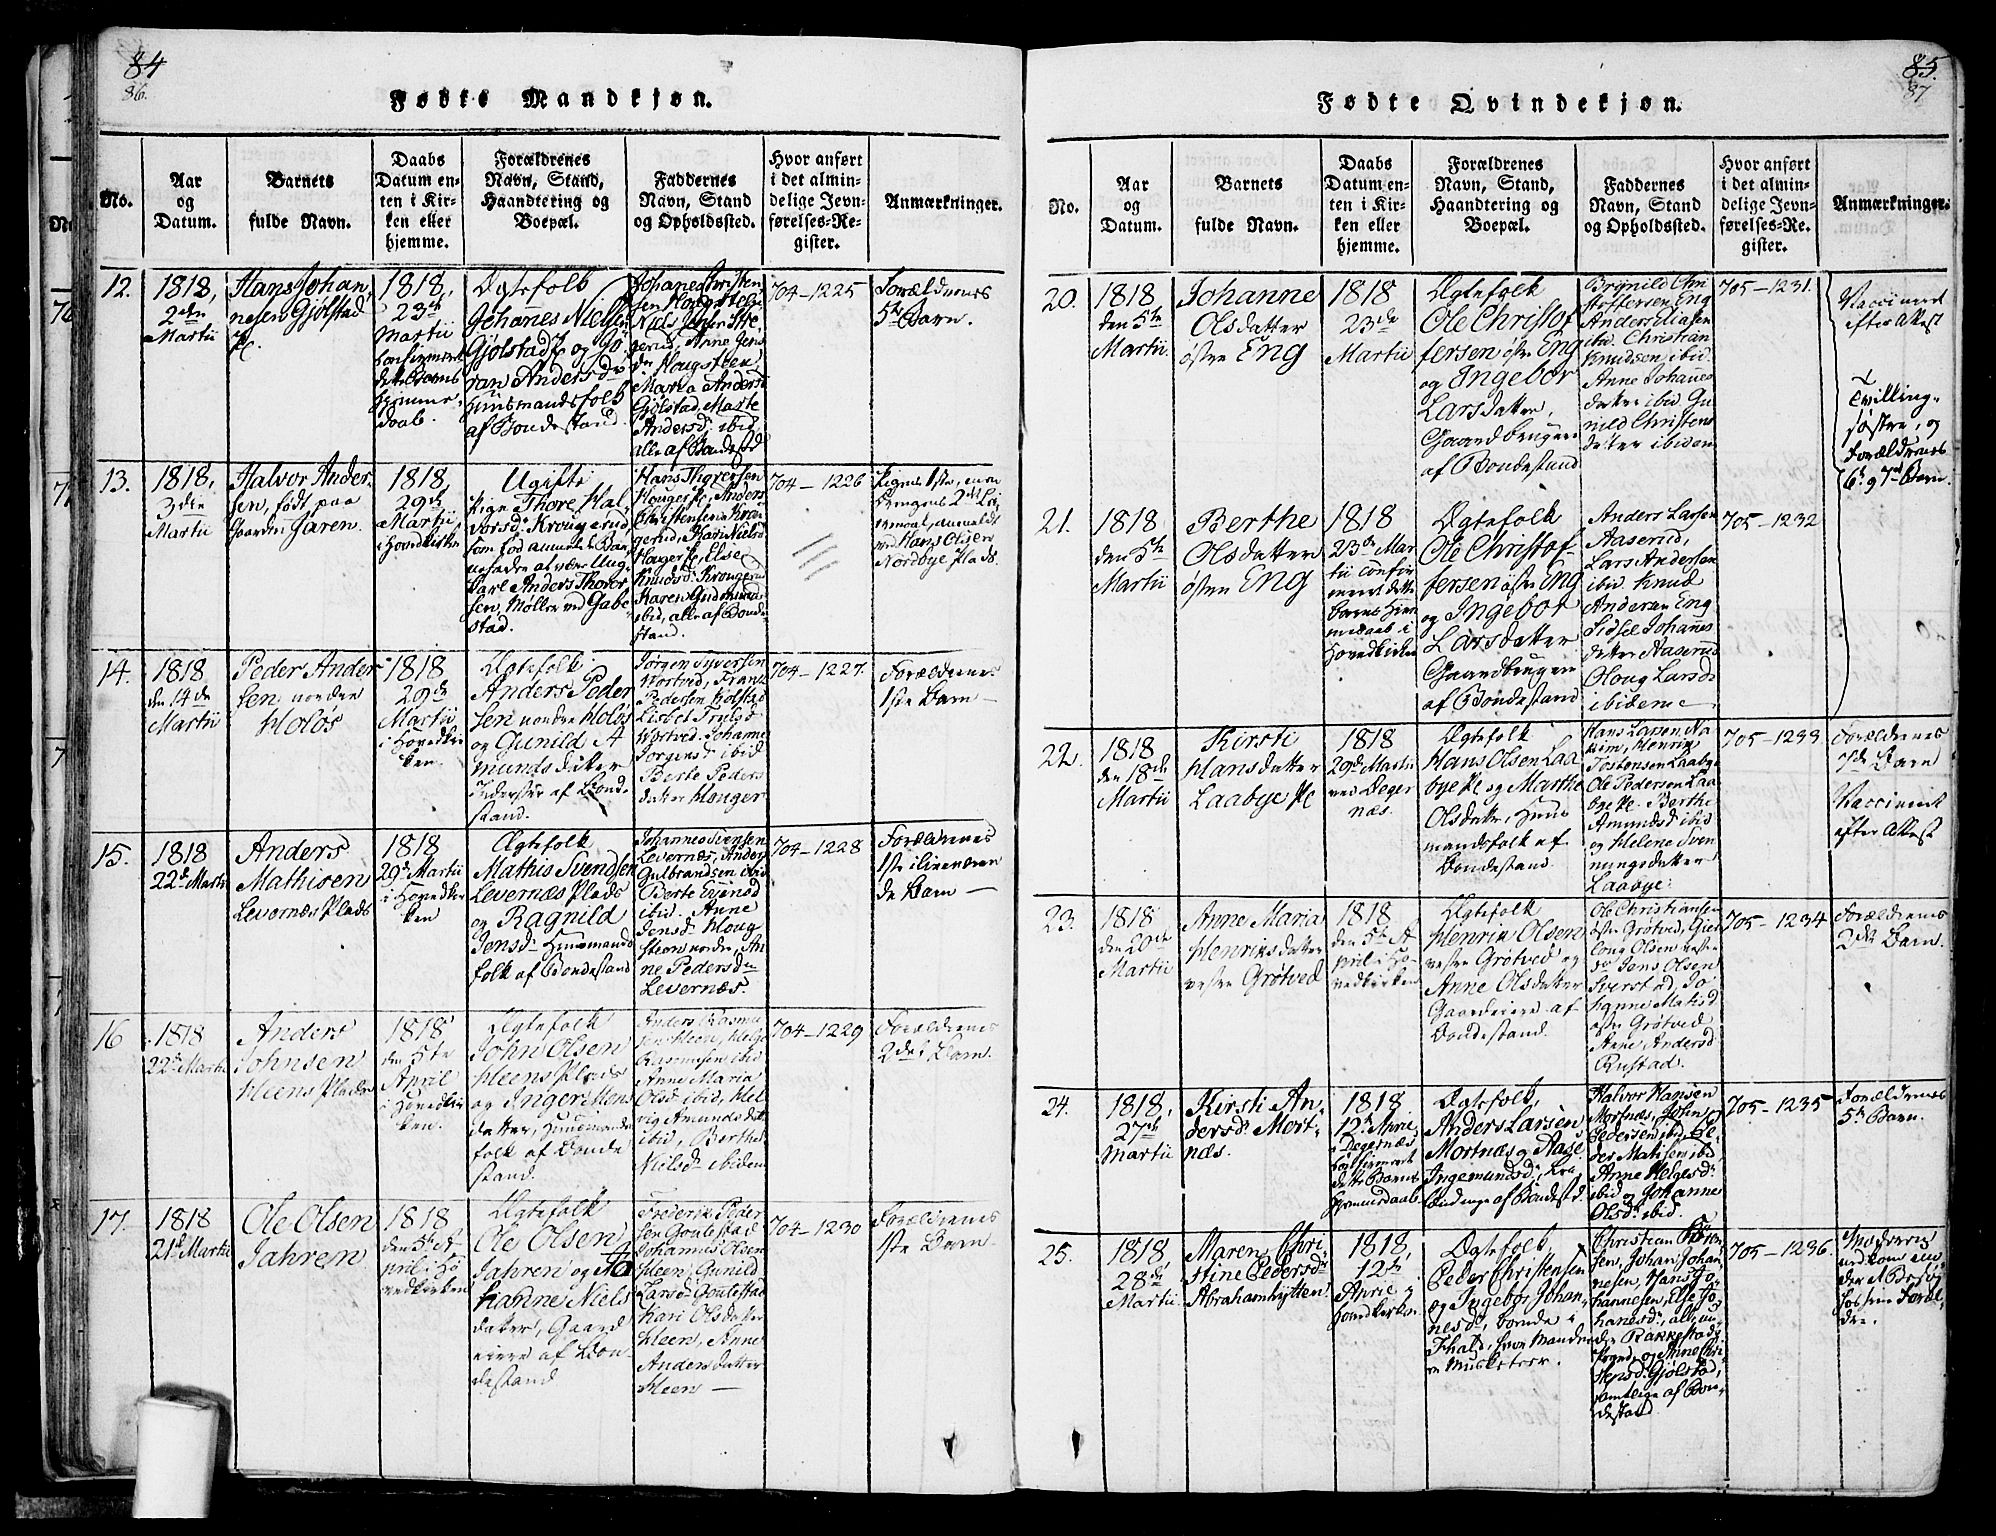 84
86.
Fødte Mandkjøn.
No.
Aar
og
Datum.
Barnets
fulde Navn.
Daabs
Datum en-
ten i Kir-
ken eller
hjemme.
Forældrenes
Navn, Stand,
Haandtering og
Boepæl.
Faddernes
Navn, Stand
og Opholdssted.
Hvor anført
i det almin-
delige Jevn-
førelses-Re-
gister.
Anmærkninger.
12.
1818,
2den
Martii
Hans Johan
nesen Gjølstad
Pl.
1818,
23de
Martii
confirmeret
dette Barns
Hjemme-
daab.
Ægtefolk
Johanes Nielsen
Gjølstad og Jø
ran Andersdr
Huusmandsfolk
af Bondestand.
Johanes Christen
sen Hougsteen
Niels Jensen
Anne Jens
dr Hougsteen
Maria Andersd
Gjølstad, Marte
Andersd. ibid,
alle af Bondestd
704-1225
Forældrenes
5te Barn.
13.
1818,
3die
Martii
Halvor Ander
sen, født paa
Gaarden Garen.
1818
29de
Martii
i Hovedkirken
Ugifte
Pige Thore Hal
vorsd: Krougerud
som
Barnefader at være Ung
Karl Anders Thorer
sen, Møller ved Gabe
stad.
Hans Thoresen
Anders
Christensen Kro
gerud, Kari Nielsd
Else
Knudsd: Krougerud
Karen Gudmunds
ibid, alle af Bonde
stand.
704-1226
Pigens 1ste, men
Drengens 2det Lei
ermaal, anmeldt
ved Hans Olsen
Nordbye Plads.
14.
1818
den 14de
Martii
Peder Ander
sen nordre
Holøs
1818
29de
Martii
i Hovedkir
ken.
Ægtefolk
Anders Peder
sen nordre Holøs
og Gunild A
munds datter
Inderster af Bond
stand.
Jørgen Syversen
Wortved, Frants
Pedersen Kolstad
Lisbet
Wortved. Johanne
Jorgensd ibid
Berte Peders
datter Houger
704-1227
Forældrenes
1ste Barn-
15.
1818
22de Martii
Anders
Mathisen
Levernæs Plads
1818
29de Martii
i Hovedkir
ken
Ægtefolk
Mathis Svendsen
Levernæs Plads
og Ragnild
Jensdr Huusmands
folk af Bondestand
Johannes Svensen
Levernæs, Anders
Gulbrandsen ibid
Berte Evensd
ibid. Anne
Jensd: Houg
steen nordre, An
ne Pedersdr
Levernæs.
704-1228
Forældrenes
1ste iliveværen
de Barn-
16
1818
22de Martii
Anders
Johnsen
Heens Plads
1818
den 5te
April
i Hovedkir
ken.
Ægtefolk
John Olsen
Heens Plads
og Inger Hans
datter, Huusmands
folk af Bonde
stand.
Anders Rasmu
sen Heen, Helge
Rasmusen ibid
Anne Maria
Olsd ibid, Hel
vig Amundsdatt
ibid, Berthe
Nielsd ibidem
704-1229
Forældrenes
2det Barn.
17.
1818
21de Martii
Ole Olsen
Jahren
1818
den 5te A
pril i Ho
vedkirken
Ægtefolk
Ole Olsen
Jahren og
hanne Niels
datter, Gaard
eiere af Bon-
destand
Frederik Peder
sen Goulestad
Johannes Olsen
Heen, Gunild
Larsd Goulestad
Kari Olsdatter
Heen, Anne
Anders datter
Heen-
704-1230
Forældrenes
1ste Barn-
85.
87
Fødte Qvindekjøn.
No.
Aar
og
Datum.
Barnets
fulde Navn.
Daabs
Datum en-
ten i Kir-
ken eller
hjemme.
Forældrenes
Navn, Stand,
Haandtering og
Boepæl.
Faddernes
Navn, Stand
og Opholdssted.
Hvor anført
i det almin-
delige Jevn-
førelses-Re-
gister.
Anmærkninger.
20.
1818
den 5te
Martii.
Johanne
Olsdatter
østre Eng
1818
23de
Martii
Ægtefolk
Ole Christof
fersen østre Eng
og Ingebor
Larsdatter,
Gaardbruger
af Bondestand
Brynild Chri
stoffersen Eng
Anders Eliasen
ibid. Christian
Knudsen ibid.
Anne Johannes
datter ibid Gu
nild Christens
datter ibidem
705-1231.
Vaccineret
efter Attest
Tvilling-
søstre, og
Forældrenes
6te og 7de Barn.
21.
1818
den 5te
Martii
Berthe
Olsdatter
østre Eng
1818
23de Mar
tii confir
meret dette
Barns Hjem
medaab i
Hovedkirken
Ægtefolk
Ole Christof-
fersen østre Eng
og Ingebor
Larsdatter
Gaardbruger
af Bondestand
Anders Larsen
Aaserud,
Lars Andersen
ibid Knud
Andersen Eng
Sidsel Johannes
datter Aaserud
Oloug Larsd:
ibideme.
705-1232
22.
1818
den 18de
Martii
Kirsti
Hansdatter
Laabye Pl
1818
29de Martii
ved Deger
næs.
Ægtefolk
Hans Olsen Laa
bye Pl og Marthe
Olsdatter, Huus
mandsfolk af
Bondestand.
Hans Larsen Na
kim, Henrik
Tostensen Laabye
Ole Pedersen Laa
bye Pl. Berthe
Amundsd ibid
og Helene Sven
nungsdatter
Laabye.
705-1233
Forældrenes
1ste Barn
Vaccineret
efter Attest
23.
1818
den 20de
Martii
Anne Maria
Henriks datter
vestre Grøtved
1818
den 5te A
pril i Ho-
vedkirken
Ægtefolk
Henrik Olsen
vestre Grøtved og
Anne Olsdatter
Gaardeiere af
Bondestand.
Ole Christiansen
østre Grøtved,
Olsen vestre
do Jens Olsen
Sverstad, Jo
hanne Matisd
østre Grøtved
Anne Andersd
Rustad.
705-1234
Forældrenes
2det Barn.
24.
1818,
27de
Martii
Kirsti An
dersd: Mort-
næs.
1818
12te Aprile
i Degernæs
confirmeret
dette Barns
Hjemmedaab
Ægtefolk,
Anders Larsen
Mortnæs og Aase
Ingemundsd:
af Bondestd.
Halvor Hansen
Mortnæs, John
Pedersen ibid, Pe-
der Matisen ibid,
Anne Helgesdr
ibid og Johanne
Olsdr ibid.
705-1235
Forældrenes
5te Barn.
25.
1818,
28de
Martii
Maren Chri
stine Pedersdr
Abrahamhytten
1818,
12te
Aprile i
Hovedkirken
Ægtefolk
Peder Christensen
og Ingebor Johan
nesdr, boende i
Fhald, hvor Manden
er Musketeer.
Christian
sen, Johan Johan
nesen, Hans Jo-
hannesen, Else Jo
hanesd:, alle
Rakkestads
Pregd, og Anne Chri
stensd: Gjølstad,
samtlige af Bon-
destand.
705-1236.
Moderen
nedkom un
der et Besøg
hos sine Foræl
dre.